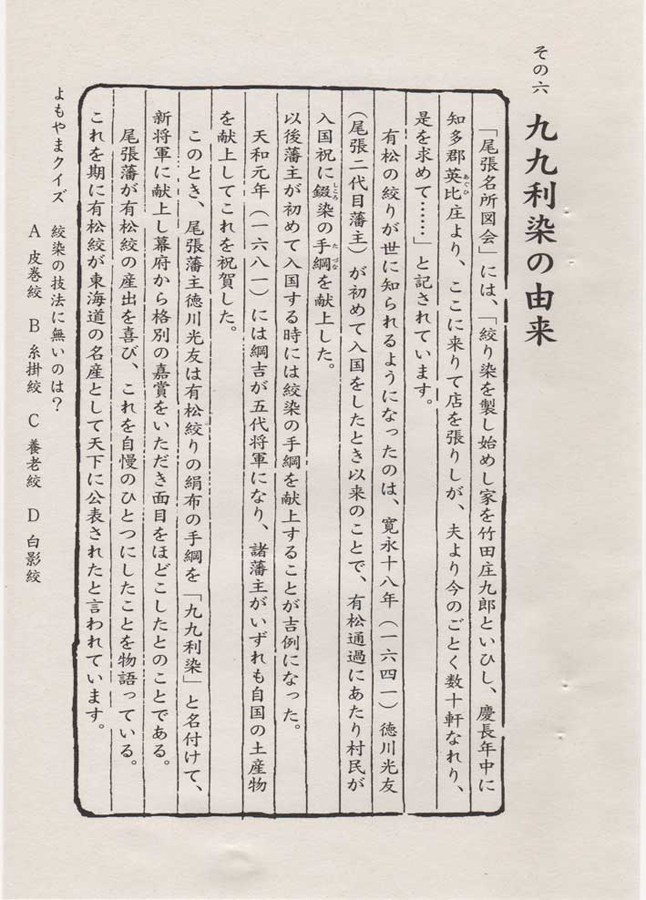 その六
九九利染の由来
「尾張名所図会」には、「絞り染を製し始めし家を竹田庄九郎といひし、慶長年中に
知多郡英比庄より、ここに来りて店を張りしが、夫より今のごとく数十軒なれり、
是を求めて……」と記されています。
有松の絞りが世に知られるようになったのは、寛永十八年(一六四一)徳川光友
(尾張二代目藩主)が初めて入国をしたとき以来のことで、有松通過にあたり村民が
入国祝に綴染の手綱を献上した。
以後藩主が初めて入国する時には絞染の手綱を献上することが吉例になった。
天和元年(一六八一)には綱吉が五代将軍になり、諸藩主がいずれも自国の土産物
を献上してこれを祝賀した。
このとき、尾張藩主徳川光友は有松絞りの絹布の手綱を「九九利染」と名付けて、
新将軍に献上し幕府から格別の嘉賞をいただき面目をほどこしたとのことである。
尾張藩が有松絞の産出を喜び、これを自慢のひとつにしたことを物語っている。
これを期に有松絞が東海道の名産として天下に公表されたと言われています。
よもやまクイズ 絞染の技法に無いのは?
A 皮巻絞 B 糸掛絞 C 養老絞 D 白影絞